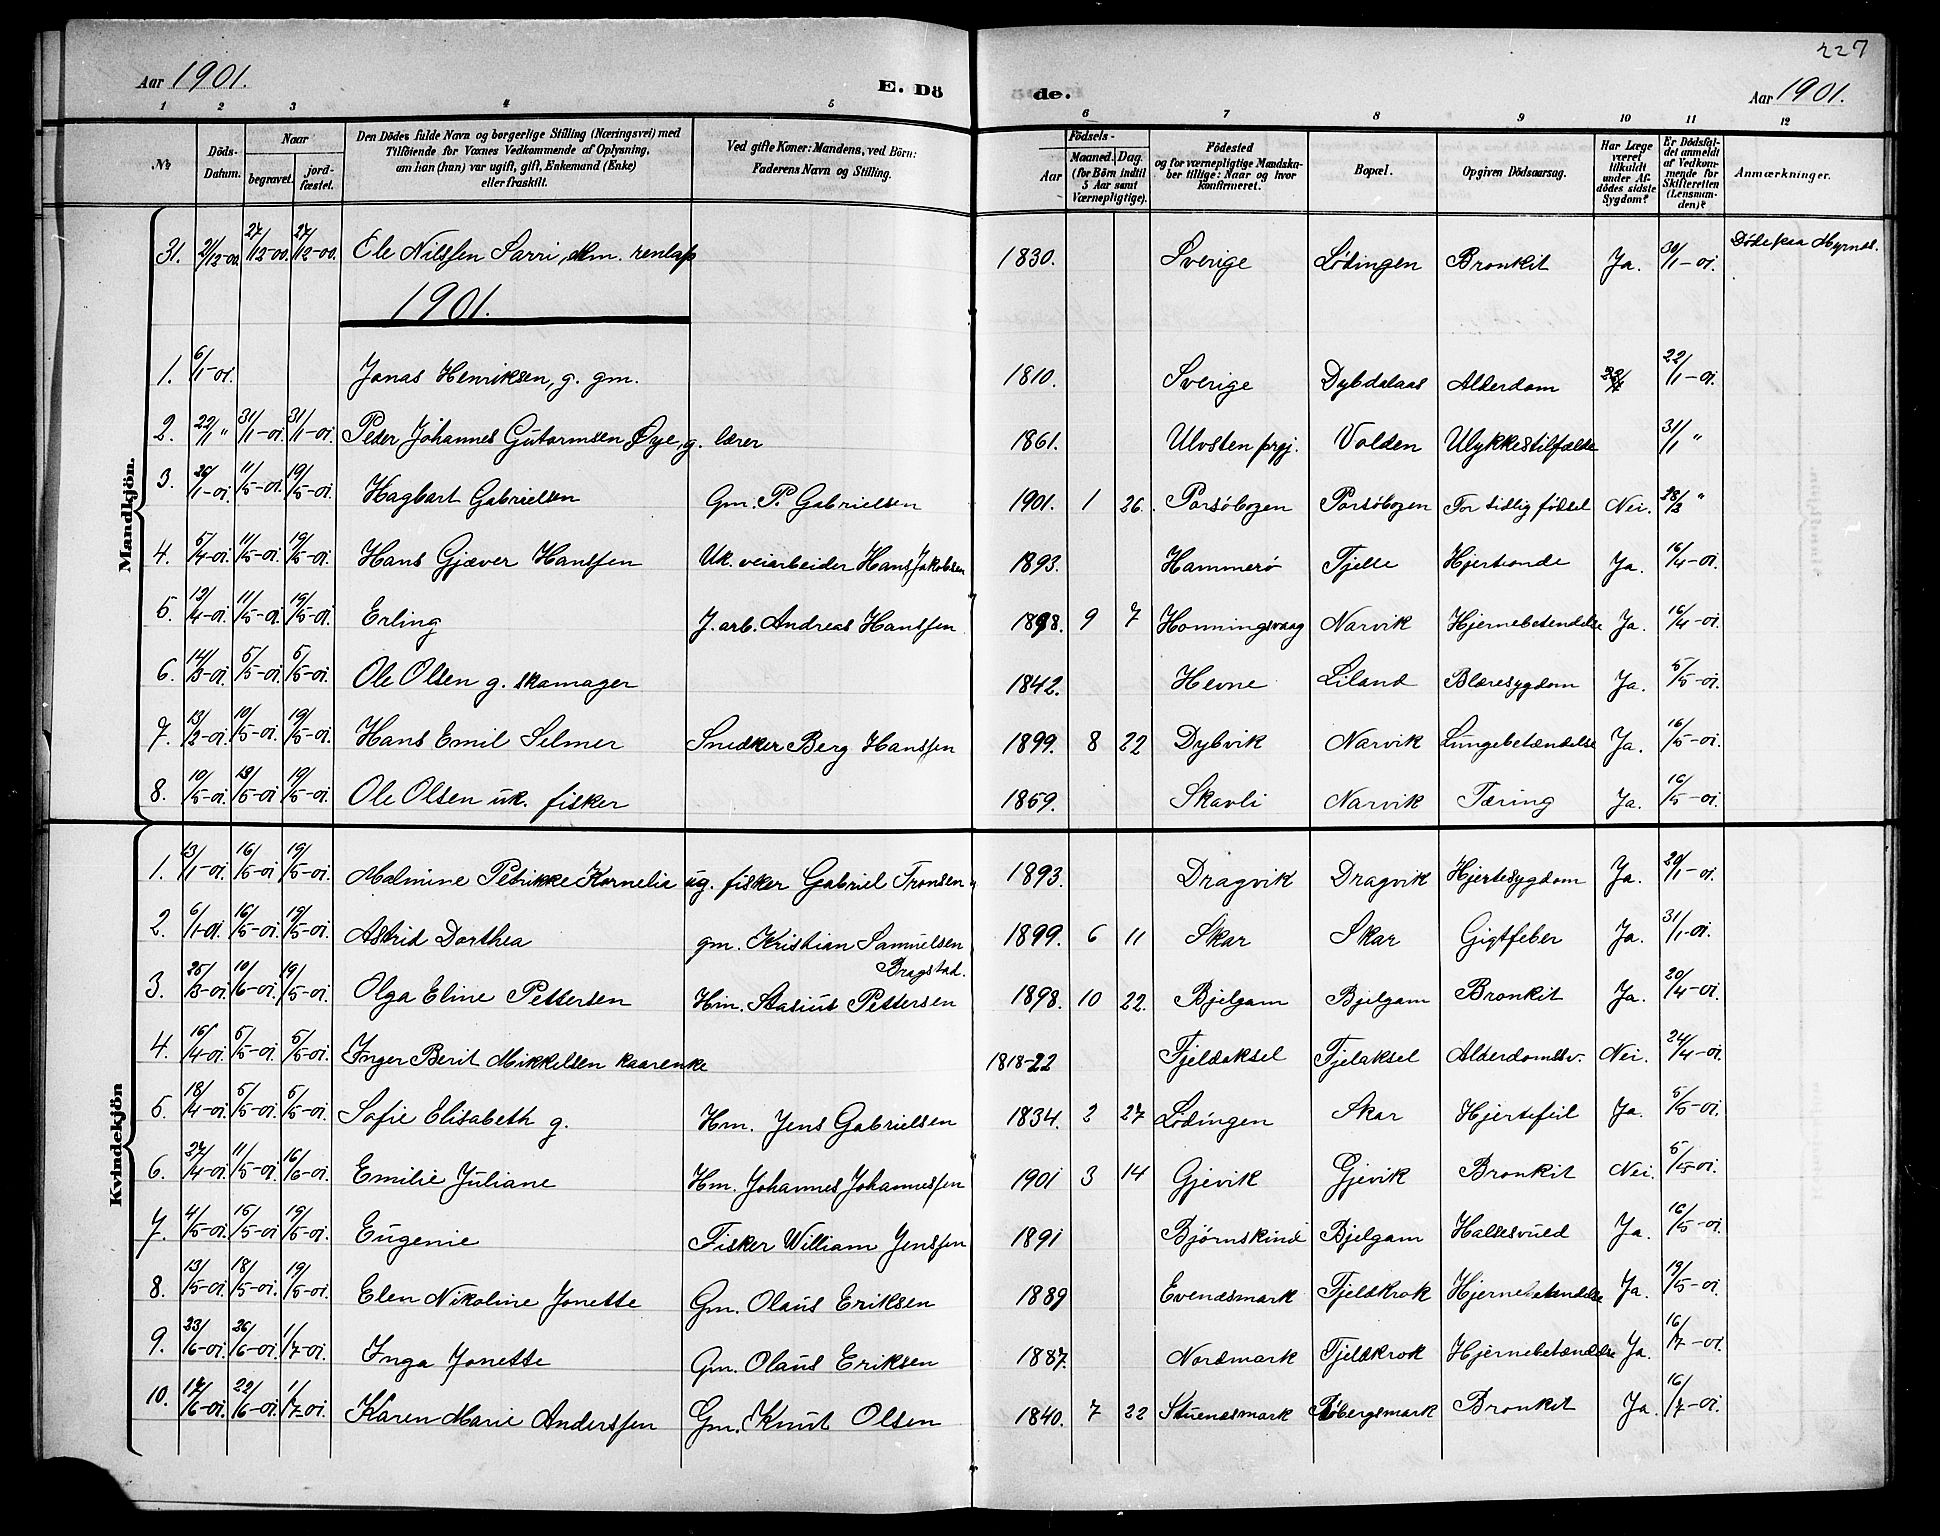 227
Aar 1901. E. Dö de. Aar 1901.
1 2 3 4 5 6 7 8 9 10 11 12
No
Döds-Datum.
Naar
begravet.
jord-fæstet.
Den Dödes fulde Navn og borgerlige Stilling (Næringsvei) med
Tilföiende for Voxnes Vedkommende af Oplysning,
om han (hun) var ugift, gift, Enkemand (Enke)
eller fraskilt.
Ved gifte Koner: Mandens, ved Börn:
Faderens Navn og Stilling.
Födsels-
Aar
Maaned. Dag.
(for Börn indtil
5 Aar samt
Værnepligtige).
Födested
og for værnepligtige Mandska-
ber tillige: Naar og hvor
konfirmeret.
Bopæl.
Opgiven Dödsaarsag.
Har Læge
været
tilkaldt
under Af-
dödes sidste
Sygdom?
Er Dödsfal-
det anmeldt
af Vedkom-
mende for
Skifteretten
(Lensman-
den)?
Anmærkninger.
Mandkjön.
31. 2/12-00. 27/12-00. 27/12-00. Ole Nilssen Sarri, renlap 1830. Sverige Lødingen Bronkit Ja. 30/1-01. Døde paa Myrnes.
1901.
1. 6/1-01. Jonas Henriksen, g. gm. 1810. Sverige Dybdalaas Alderdom 22/1-01.
2. 22/1 " 31/1-01. 31/1-01. Peder Johannes Gutormsen Øye, g. lærer 1861. Ulvsten prgj. Volden Ulykkestilfælde 31/1 "
3. 26/1-01. 11/5-01. 19/5-01. Hagbart Gabrielsen Gm. P. Gabrielsen 1901. 1 26. Forsøbogen Forsøbogen For tidlig fødsel Nei. 28/3 "
4. 5/4-01. 11/5-01. 19/5-01. Hans Gjæver Hanssen Uk. veiarbeider Hans Jakobsen 1893. Hammerø Fjelle Hjertionde Ja. 16/4-01.
5. 13/4-01. 11/5-01. 19/5-01. Erling J. arb. Andreas Hanssen 1898. 9 7 Honningsvaag Narvik Hjernebetendelse Ja. 16/4-01.
6. 14/3-01. 5/5-01. 5/5-01. Ole Olsen g. skomager 1842. Hevne Liland Blæresygdom Ja. 5/5-01.
7. 13/2-01. 10/5-01. 19/5-01. Hans Emil Selmer Snedker Berg Hanssen 1899. 8 22 Dybvik Narvik Lungebetændelse Ja. 16/5-01.
8. 10/5-01. 13/5-01 19/5-01. Ole Olsen uk. fisker 1859. Skavli Narvik Tæring Ja. 16/5-01.
Kvindekjön
1. 13/1-01. 16/5-01. 19/5-01. Malmine Petrikke Kornelia ug. fisker Gabriel Tronsen 1893. Dragvik Dragvik Hjertesygdom Ja. 29/1-01.
2. 6/1-01. 16/5-01. 19/5-01. Astrid Dorthea gm. Kristian Samuelsen Bragstad. 1899. 6 11 Skar Skar Gigtfeber Ja. 31/1-01.
3. 25/3-01. 10/6-01. 19/5-01. Olga Eline Pettersen Hm. Stasius Pettersen 1898. 10 22. Bjelgam Bjelgam Bronkit Ja. 20/4-01.
4. 16/4-01. 5/5-01. 5/5-01. Inger Berit Mikkelsen kaarenke 1818-22 Fjeldaksel Fjelaksel Alderdomssv. Nei. 24/4-01.
5. 18/4-01. 5/5-01. 5/5-01. Sofie Elisabeth g. Hm. Jens Gabrielsen 1834. 2 27 Lødingen Skar Hjertefeil Ja. 5/5-01.
6. 27/4-01. 11/5-01. 16/6-01. Emilie Juliane Hm. Johannes Johannessen 1901 3 14 Gjevik Gjevik Bronkit Nei. 5/5-01.
7. 4/5-01. 15/5-01. 19/5-01. Eugenie Fisker William Jenssen 1891 Bjørnskind Bjelgam Halsesvuld Ja. 16/5-01.
8. 13/5-01 18/5-01. 19/5-01. Elen Nikoline Jonette Gm. Olaus Eriksen 1889 Evenesmark Fjeldkrok Hjernebetændelse Ja. 19/5-01.
9. 23/6-01. 26/6-01. 1/7-01. Inga Jonette Gm. Olaus Eriksen 1887. Nordmark Fjeldkrok Hjernebetændelse Ja. 16/7-01.
10. 17/6-01. 22/6-01. 1/7-01. Karen Marie Anderssen Gm. Knut Olsen 1840. 7 22 Stuenesmark Bronkit Ja. 16/7-01.